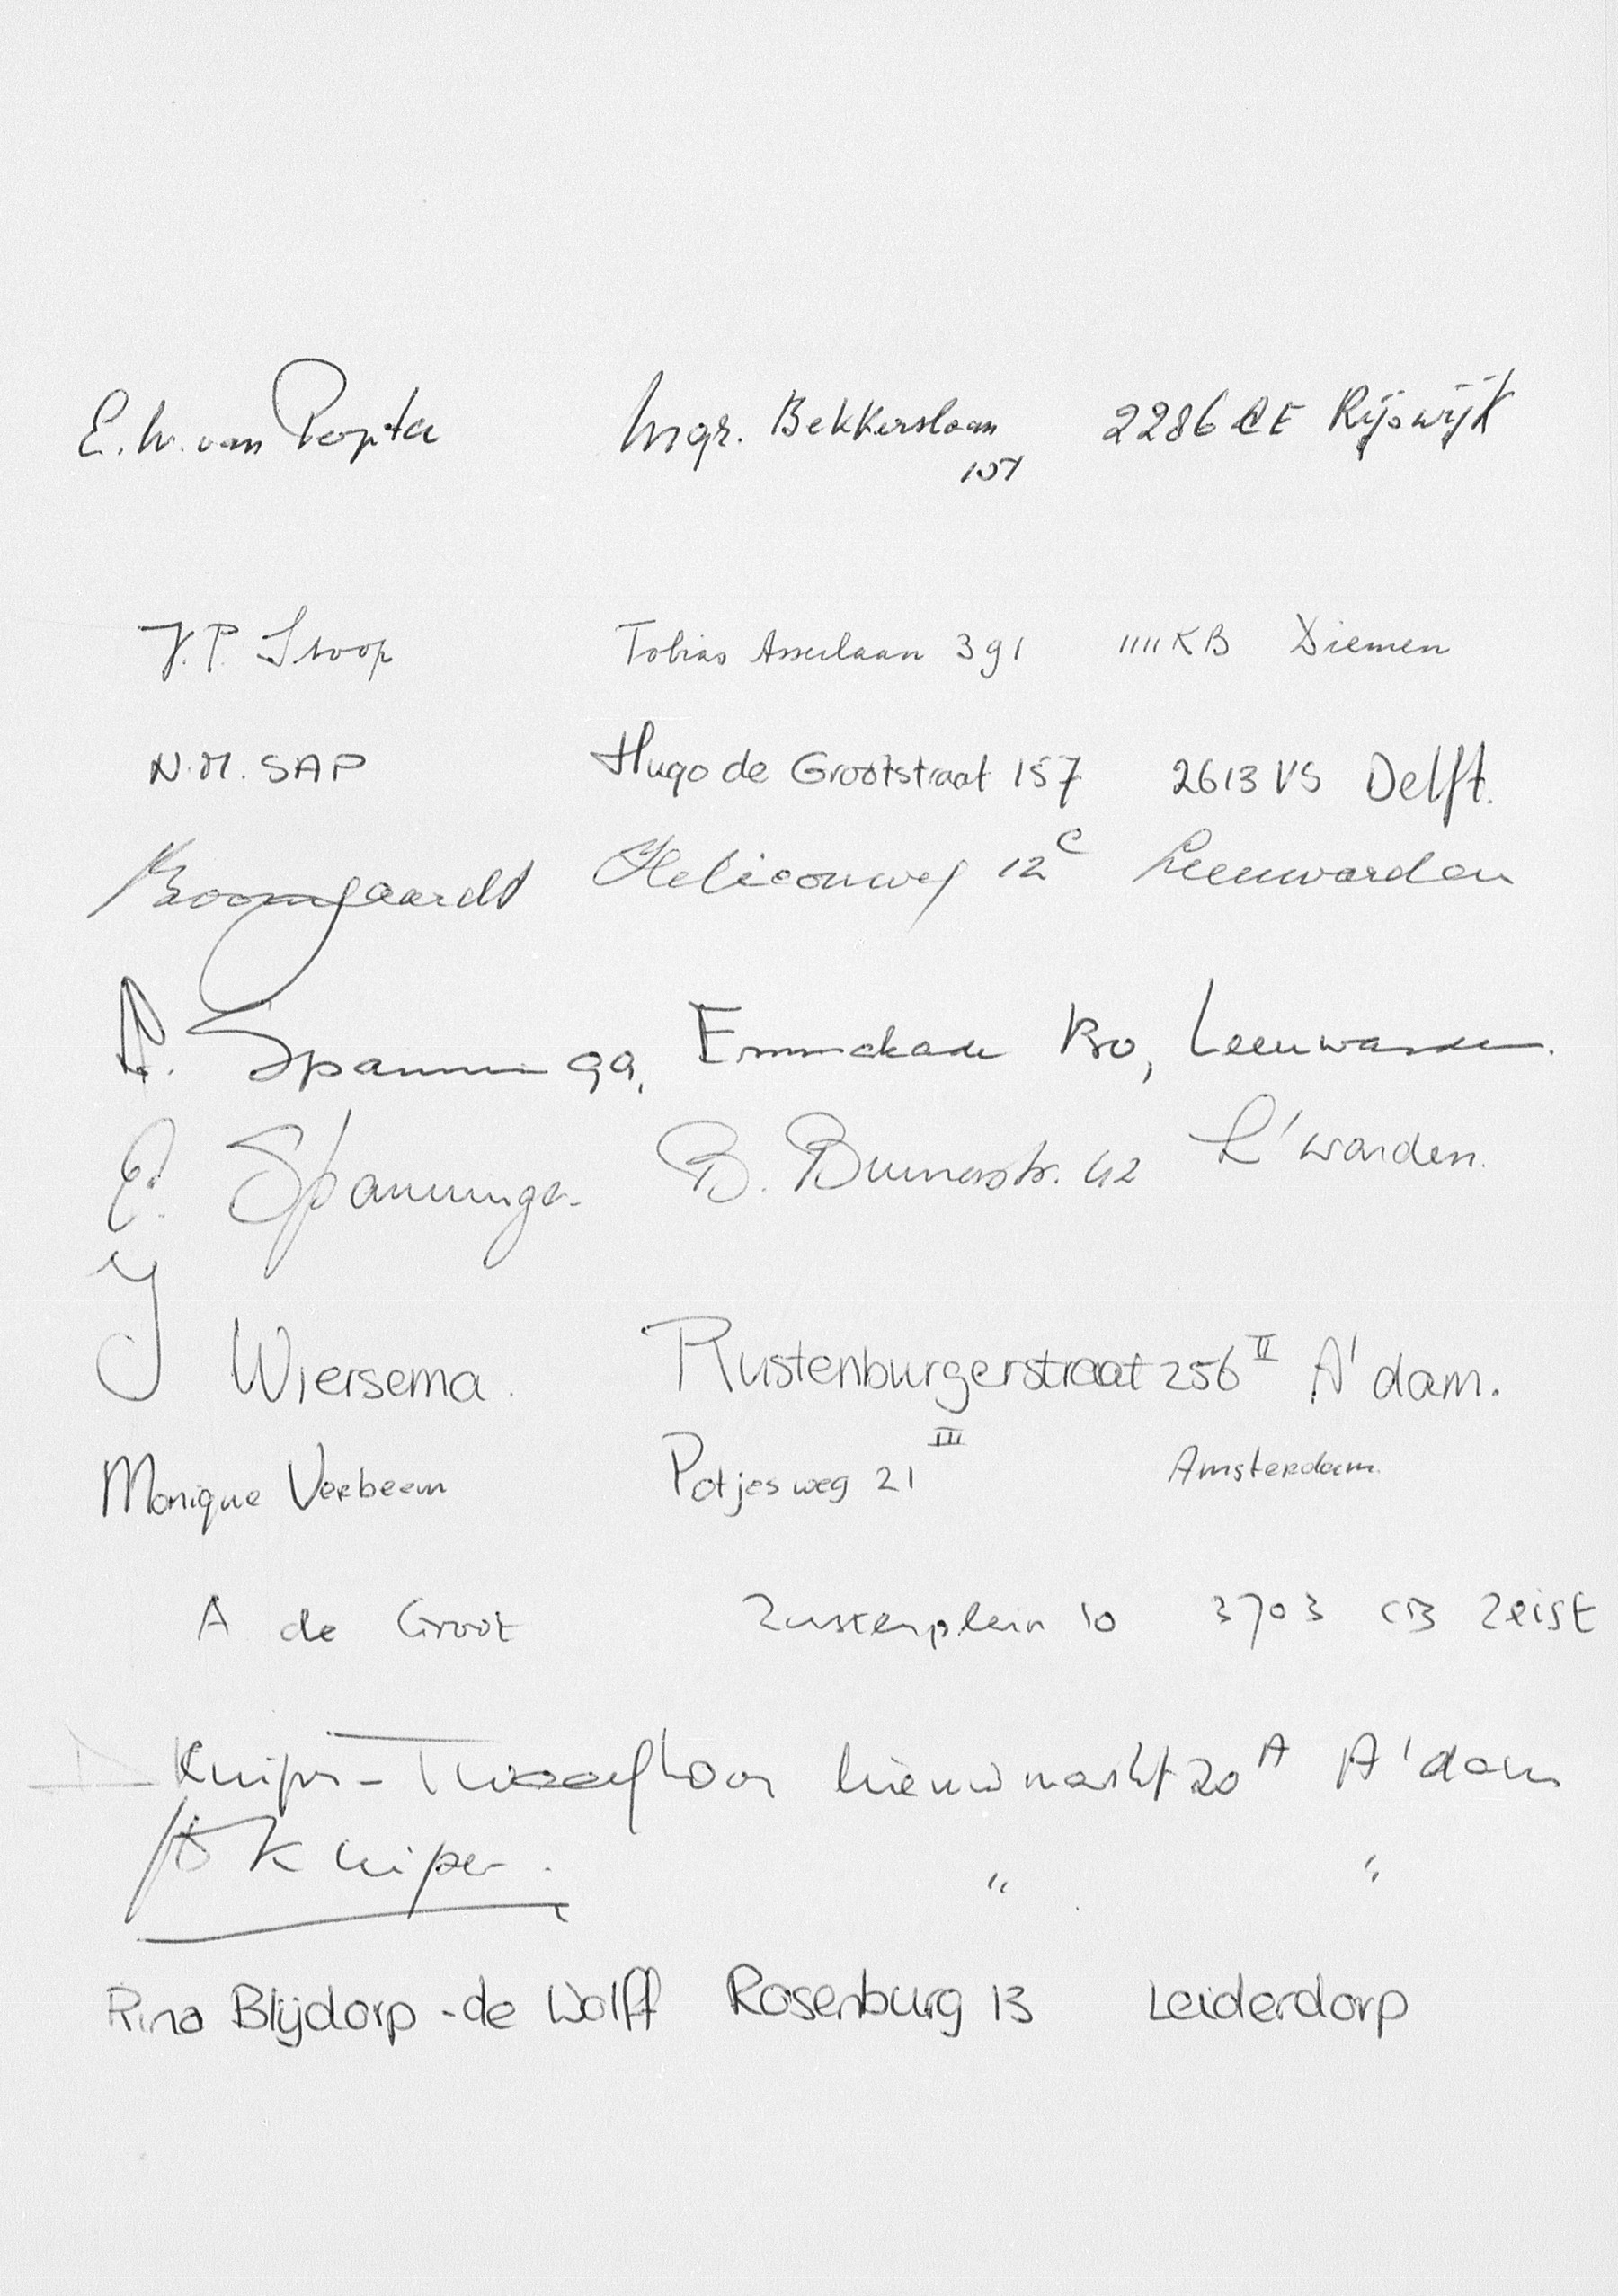 E. W. van Popta Mgr. Bekkerslaan 2286 CE Rijswijk
151
J. P. Stoop Tobias Asserlaan 391 1111 KB Diemen
N. M. SAP Hugo de Grootstraat 157 2613 VS Delft.
Boomgaardt Heliconweg 12 C Leeuwarden
Spanninga, Emmakade Leeuwarden.
E. Spanninga B. Brunastr. 42 L'warden.
Y Wiersema. Rustenburgerstraat 256 II A'dam.
Monique Verbeem Potjesweg 21 III Amsterdam.
A de Groot Zusterplein 10 3703 CB Zeist
Kuiper - Tweelhoor Nieuwmarkt 20 A A'dam
Kuiper. " "
Rina Blijdorp - de Wolff Rosenburg 13 Leiderdorp